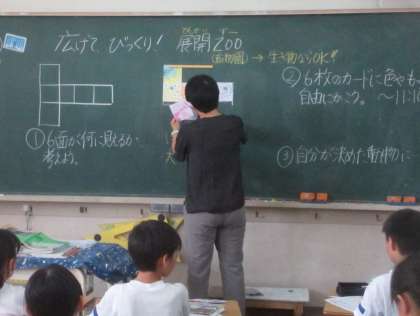 広げて びっくり! 展開ZOO
てんかい ズー
(動物園) → 生き物ならOK!!
①6面が何に見えるか
考えよう。
②6枚のカードに色やも
自由にかこう。〜11:1
③自分が決めた動物に